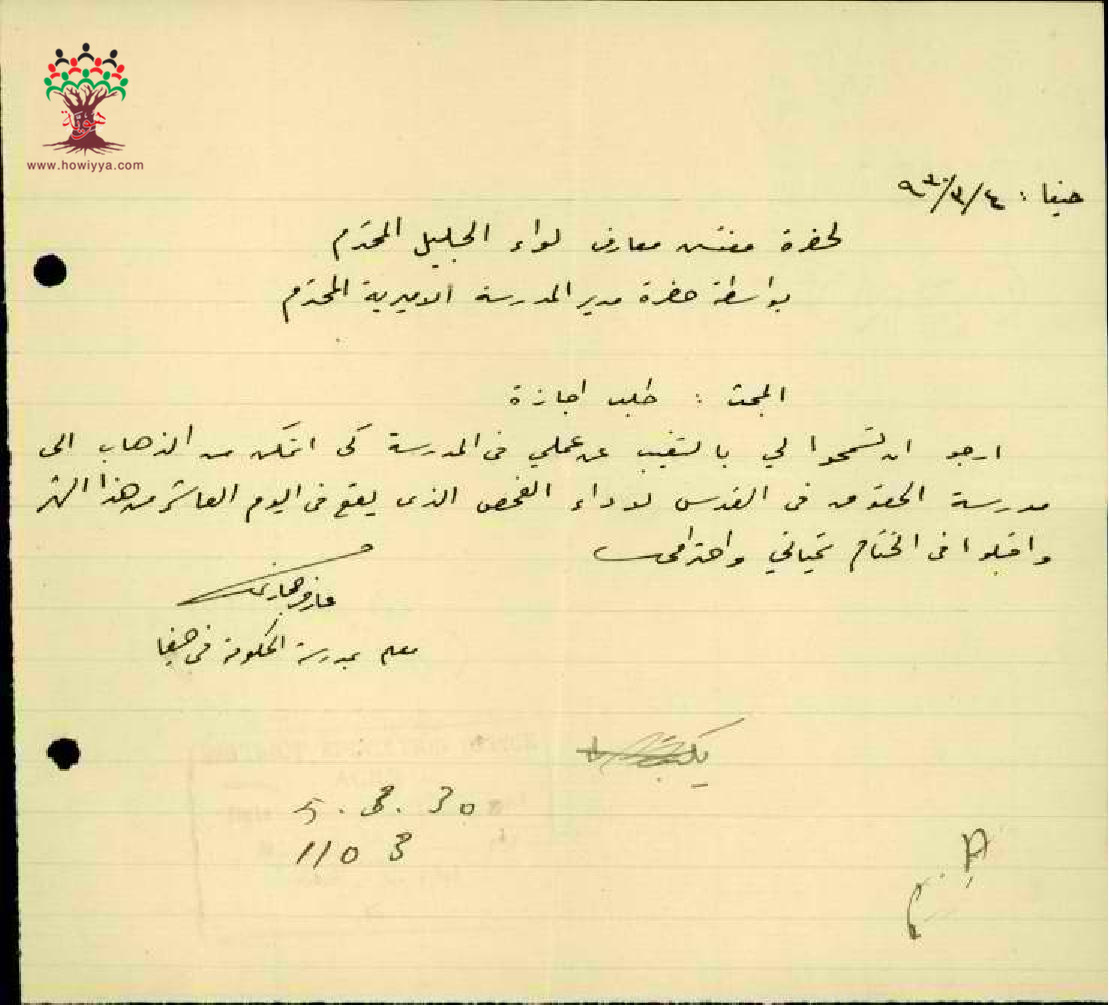 هوية
www.howiyya.com
حيفا : ٤/٣/٩٣٠
لحضرة مفتش معارف لواء الجليل المحترم
بواسطة حضرة مدير المدرسة الاميرية المحترم
المبحث : طلب اجازة
ارجو ان تسمحوا لي بالتغيب عن عملي في المدرسة كي اتمكن من الذهاب الى
مدرسة الحقوق في القدس لاداء الفحص الذي يقع في اليوم العاشر من هذا الشهر
واقبلوا في الختام تحياتي واحترامي
معلم بمدرسة الحكومة في حيفا
5. 3. 30
1103